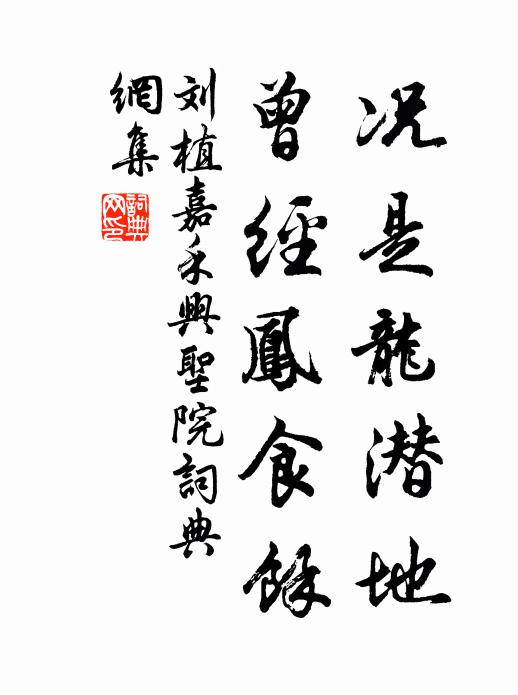 况是龍潜地
曾經鳳食餘
刘植嘉禾興聖院詞典
網集
詞典
网印